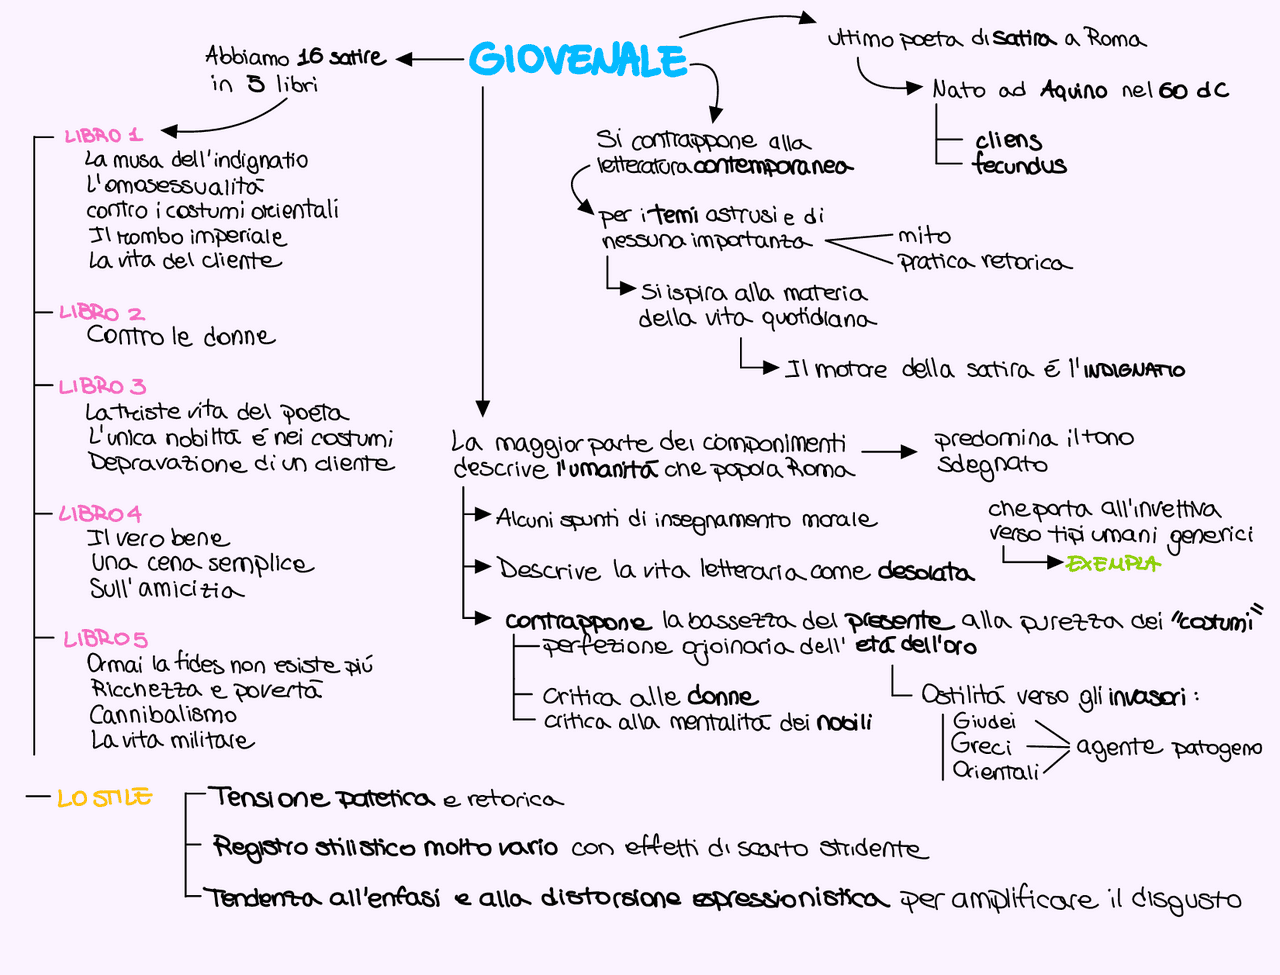 GIOVENALE
Abbiamo 16 satire
in 5 libri
LIBRO 1
La musa dell'indignatio
L'omosessualità
contro i costumi orientali
Il rombo imperiale
La vita del cliente
LIBRO 2
Contro le donne
LIBRO 3
La triste vita del poeta
L'unica nobiltà é nei costumi
Depravazione di un cliente
LIBRO 4
Il vero bene
Una cena semplice
Sull'amicizia
LIBRO 5
Ormai la fides non esiste piú
Ricchezza e povertà
Cannibalismo
La vita militare
ultimo poeta di satira a Roma
Nato ad Aquino nel 60 d C
cliens
fecundus
Si contrappone alla
letteratura contemporanea
per i temi astrusi e di
nessuna importanza
mito
pratica retorica
Si ispira alla materia
della vita quotidiana
Il motore della satira é l'INDIGNATIO
La maggior parte dei componimenti
descrive l'umanità che popola Roma
predomina il tono
sdegnato
che porta all'invettiva
verso tipi umani generici
EXEMPLA
Alcuni spunti di insegnamento morale
Descrive la vita letteraria come desolata
contrappone la bassezza del presente alla purezza dei "costumi"
perfezione ojoinaria dell' età dell'oro
Critica alle donne
critica alla mentalità dei nobili
Ostilità verso gli invasori :
Giudei
Greci
Orientali
agente patogeno
LO STILE
Tensione patetica e retorica
Registro stilistico molto vario con effetti di scarto stridente
Tendenza all'enfasi e alla distorsione espressionistica per amplificare il disgusto